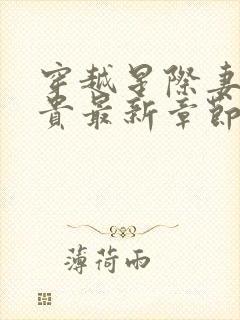 穿越星際妻
貴最新章節
薄荷雨